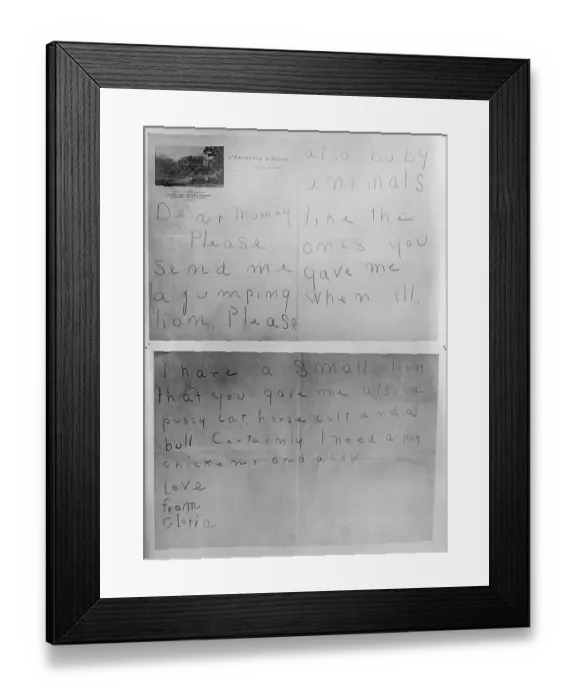 Dear Momey
Please
send me
a jumping
lion. Please
also baby
animals
like the
ones you
gave me
when ill.
I have a small lion
that you gave me also a
pussy cat, horse, calf and a
bull. Certainly I need a pig
chickens and a
Love
from
Gloria